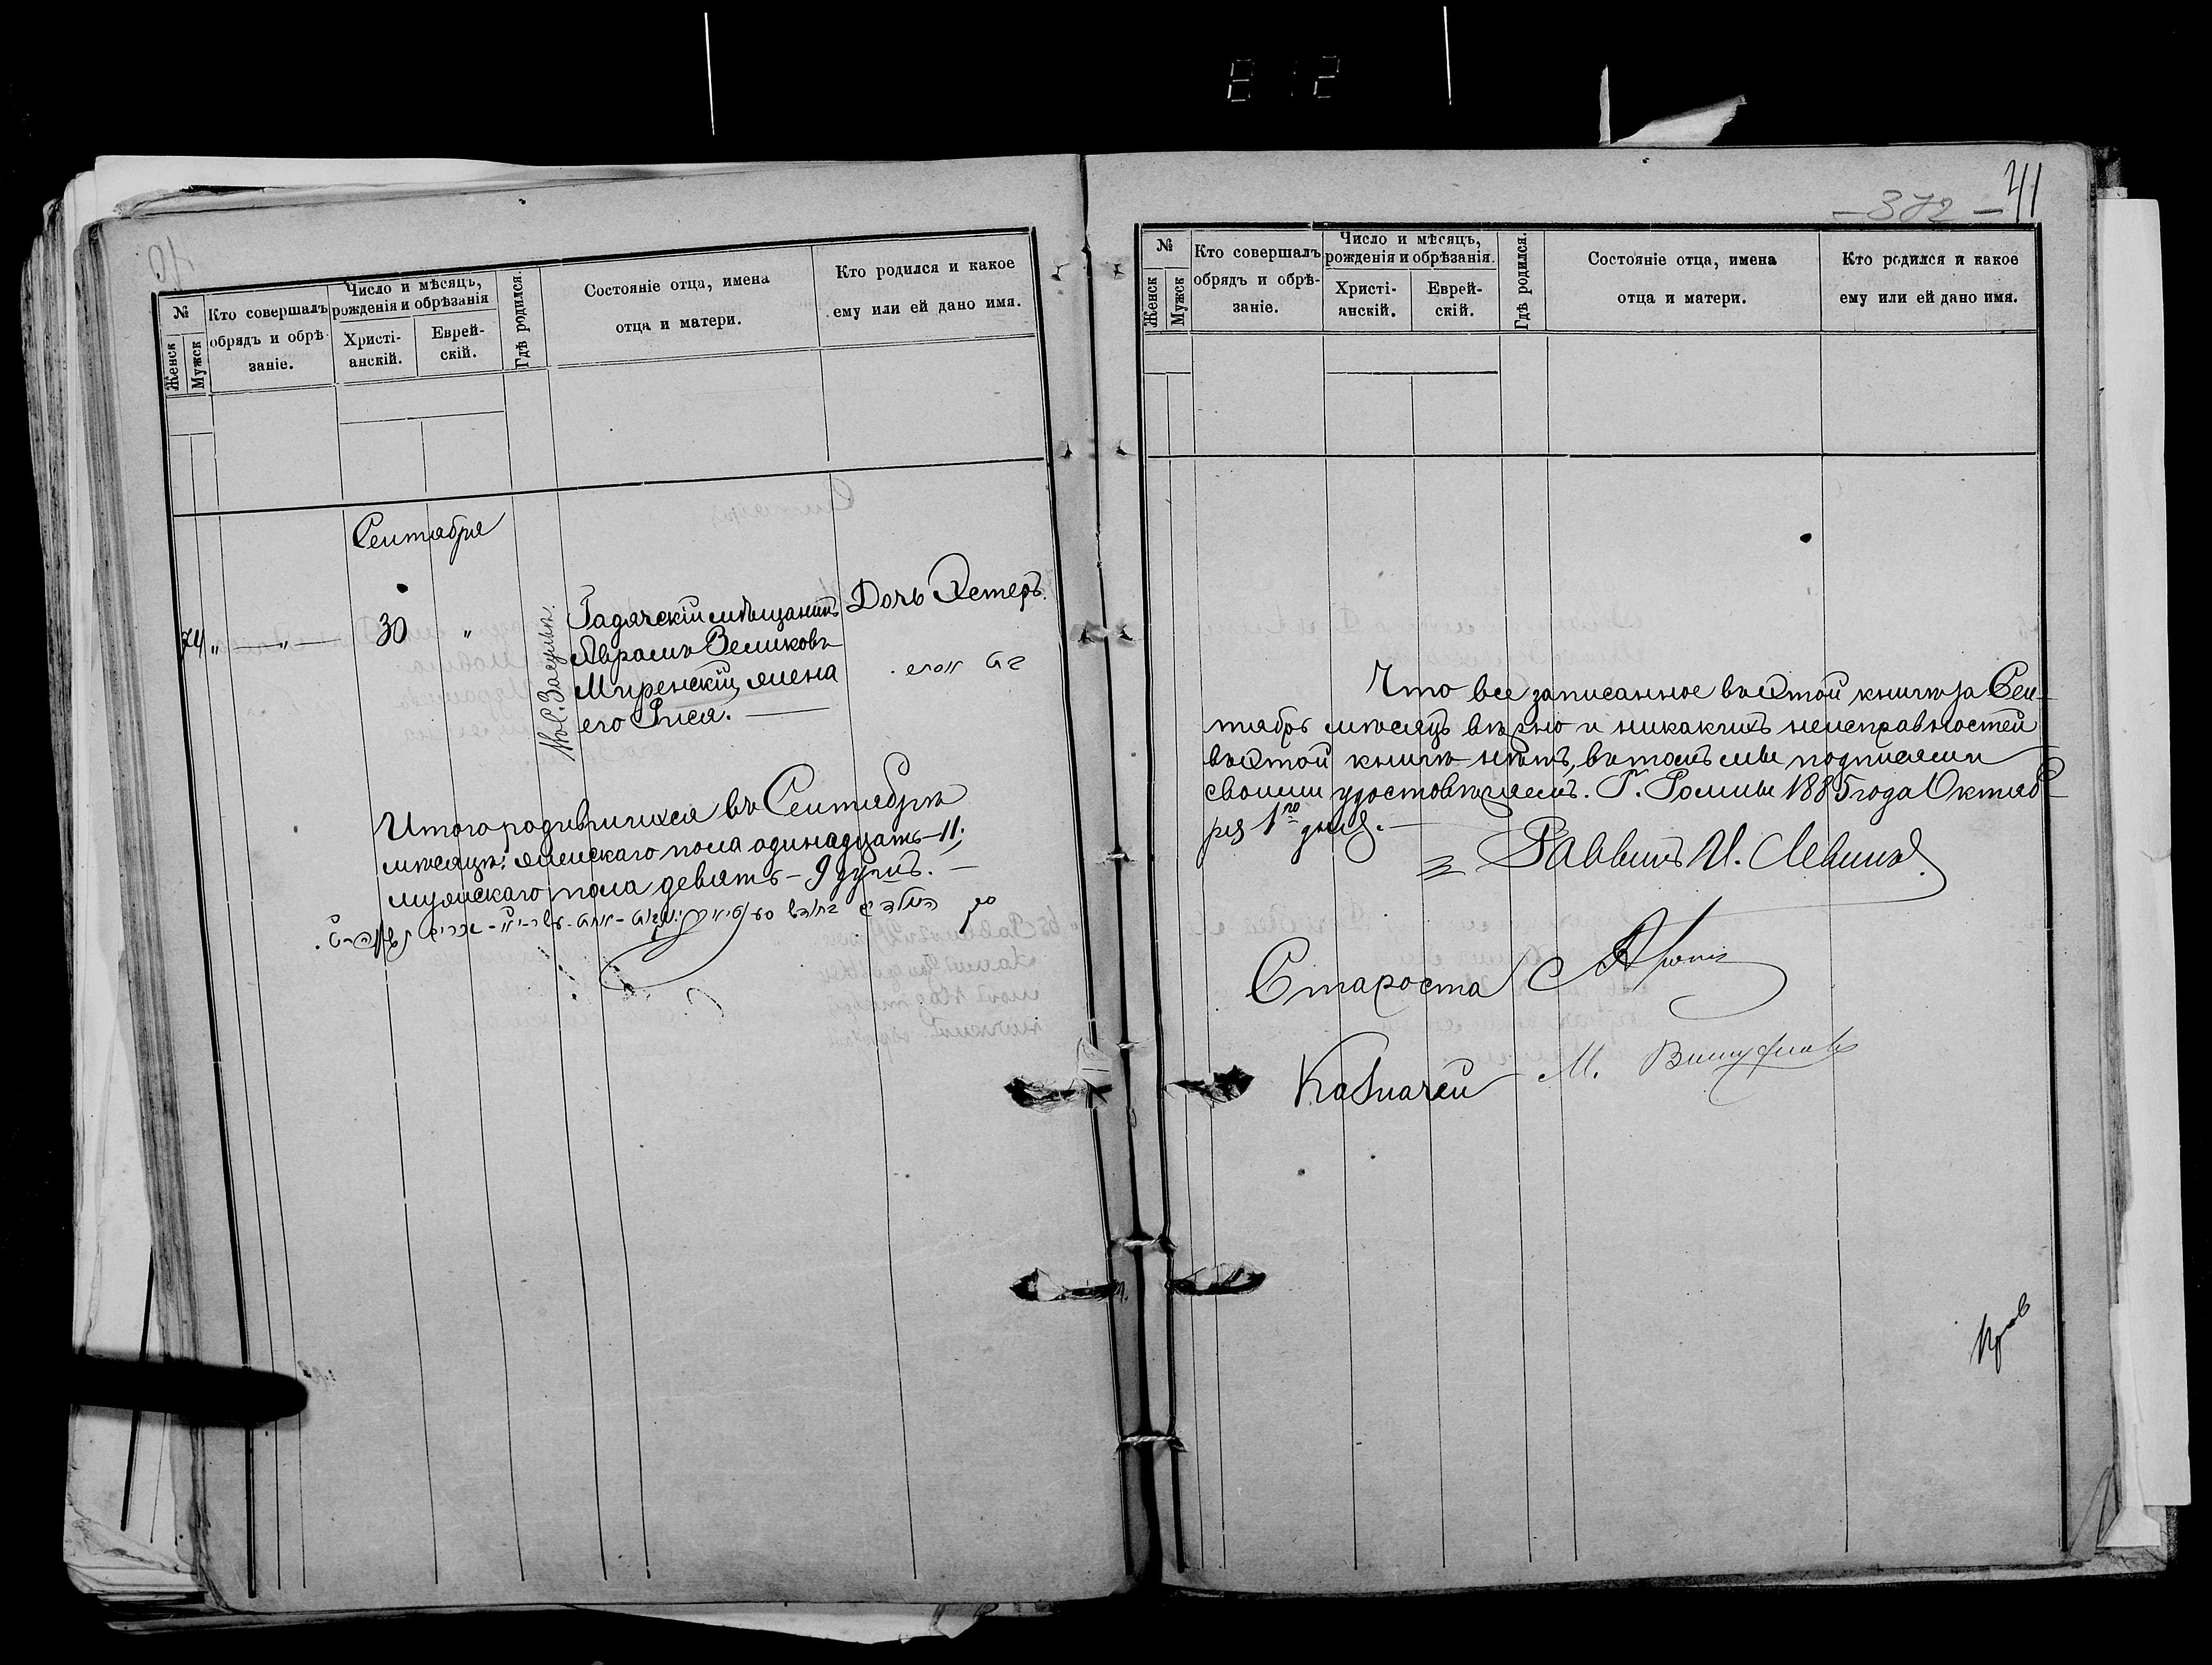 812
40
№
Женск
Мужск
Кто совершалъ
обрядъ и обрѣ-
заніе.
Число и мѣсяцъ,
рожденія и обрѣзанія
Христі-
анскій.
Еврей-
скій.
Гдѣ родился.
Состояніе отца, имена
отца и матери.
Кто родился и какое
ему или ей дано имя.
Сентября
74 " — " — 30 "
Гадячскій мѣщанинъ
Аврамъ Великовъ
Миренскій, жена
его
Дочь Эстеръ.
בת
Итого родившихся въ Сентябрѣ
мѣсяцѣ: женскаго пола одинадцать – 11,
мужскаго пола девять – 9 душъ. —
– 372 –
41
№
Женск
Мужск
Кто совершалъ
обрядъ и обрѣ-
заніе.
Число и мѣсяцъ,
рожденія и обрѣзанія.
Христі-
анскій.
Еврей-
скій.
Гдѣ родился.
Состояніе отца, имена
отца и матери.
Кто родился и какое
ему или ей дано имя.
Что все записанное въ этой книгѣ за Сен-
тябрь мѣсяцъ вѣрно и никакихъ неисправностей
въ этой книгѣ нѣтъ, въ томъ мы подписями
своими удостовѣряемъ. Г. Ромны 1885 года Октяб-
ря 1го дня. —
Раввинъ И. Левинъ
Староста
Казначей М.